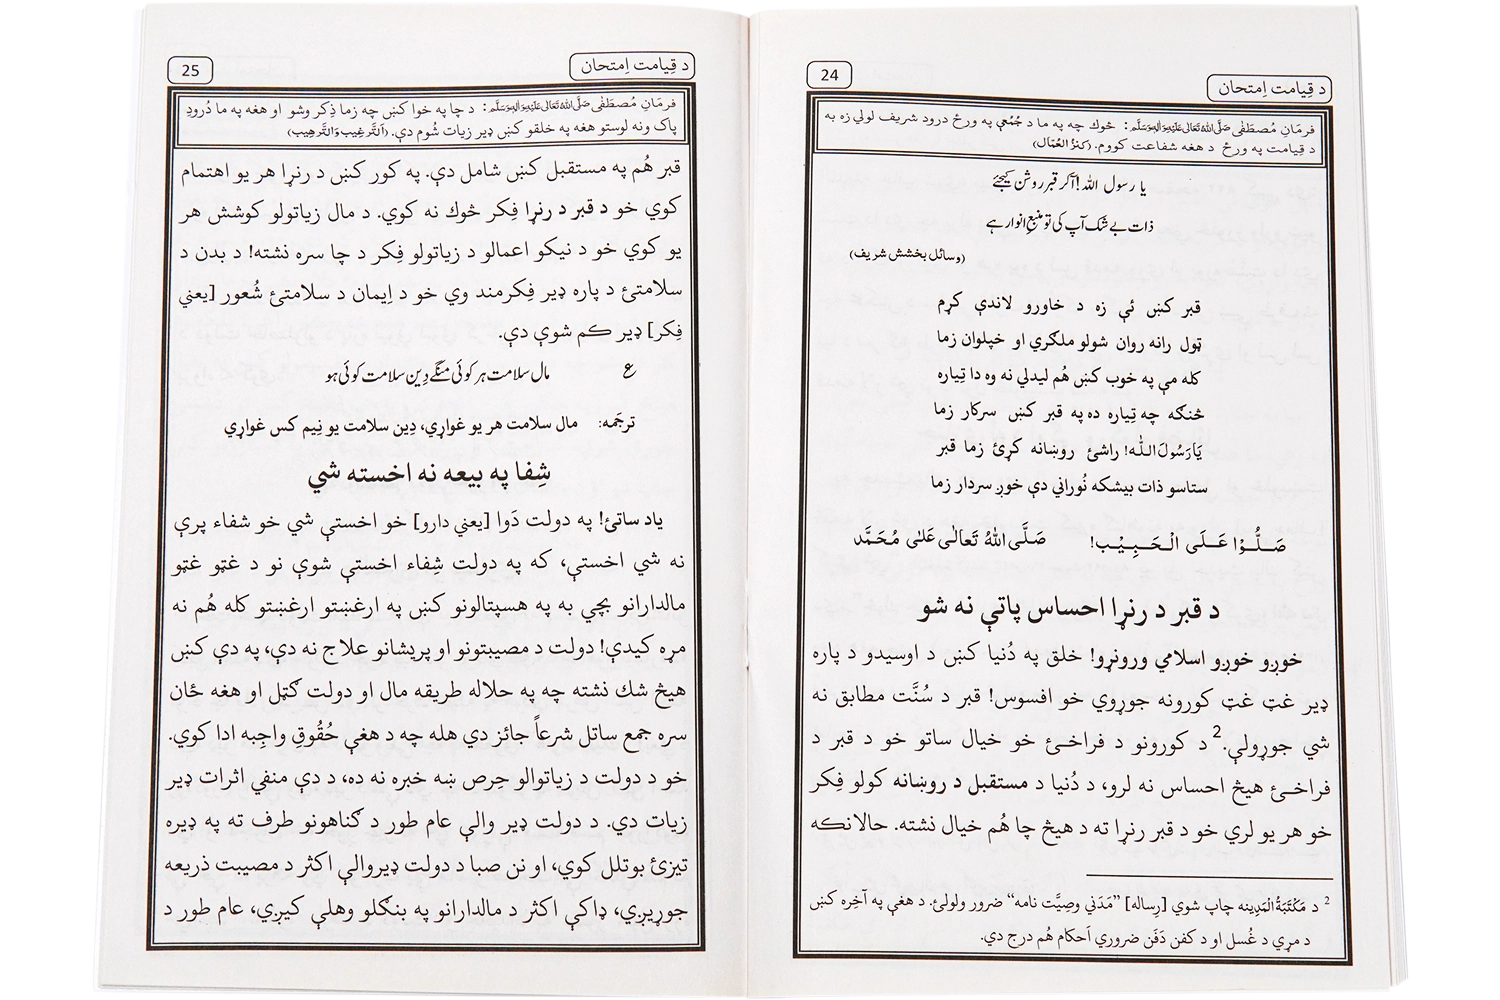 د قِيامت اِمتحان
24
فرمَانِ مُصطَفٰى صَلَّى اللهُ تَعَالٰى عَلَيْهِ وَاٰلِهٖ وَسَلَّم: څوك چه په ما د جُمُعې په ورځ درود شريف لولي زه به
د قِيامت په ورځ د هغه شفاعت كووم. (كنزُ العُمّال)
يا رسول الله! آ کر قبر روشن کیجئے
ذات بے شک آپ کی تو منبعِ انوار ہے
(وسائلِ بخشش شریف)
قبر كښ ئې زه د خاورو لاندې كړم
ټول رانه روان شولو ملګري او خپلوان زما
كله مې په خوب كښ هُم ليدلي نه وه دا تِياره
څنګه چه تِياره ده په قبر كښ سركار زما
يَارَسُولَ اللّٰه! راشئ روښانه كړئ زما قبر
ستاسو ذات بيشكه نُوراني دې خوږ سردار زما
صَلُّوْا عَلَى الْحَبِيْب! صَلَّى اللهُ تَعَالٰى عَلٰى مُحَمَّد
د قبر د رنړا احساس پاتې نه شو
خوږو خوږو اسلامي ورونړو! خلق په دُنيا كښ د اوسيدو د پاره
ډير غټ غټ كورونه جوړوي خو افسوس! قبر د سُنَّت مطابق نه
شي جوړولې.2 د كورونو د فراخئ خو خيال ساتو خو د قبر د
فراخئ هيڅ احساس نه لرو، د دُنيا د مستقبل د روښانه كولو فِكر
خو هر يو لري خو د قبر رنړا ته د هيڅ چا هُم خيال نشته. حالانكه
2 د مَكْتَبَةُ الْمَدِينه چاپ شوي [رِساله] ”مَدَني وصِيَّت نامه“ ضرور ولولئ. د هغې په آخِره كښ
د مړي د غُسل او د كفن دَفَن ضروري اَحكام هُم درج دي.
د قِيامت اِمتحان
25
فرمَانِ مُصطَفٰى صَلَّى اللهُ تَعَالٰى عَلَيْهِ وَاٰلِهٖ وَسَلَّم: د چا په خوا كښ چه زما ذِكر وشو او هغه په ما دُرودِ
پاک ونه لوستو هغه په خلقو كښ ډير زيات شُوم دې. (اَلتَّرغِيب وَالتَّرهِيب)
قبر هُم په مستقبل كښ شامل دې. په كور كښ د رنړا هر يو اهتمام
كوي خو د قبر د رنړا فِكر څوك نه كوي. د مال زياتولو كوشش هر
يو كوي خو د نيكو اعمالو د زياتولو فِكر د چا سره نشته! د بدن د
سلامتئ د پاره ډير فِكرمند وي خو د اِيمان د سلامتئ شُعور [يعني
فِكر] ډير كم شوې دې.
ع مال سلامت ہر کوئی منگے دِین سلامت کوئی ہو
ترجَمه: مال سلامت هر يو غواړي، دِين سلامت يو نِيم كس غواړي
شِفا په بيعه نه اخسته شي
ياد ساتئ! په دولت دَوا [يعني دارو] خو اخستې شي خو شفاء پرې
نه شي اخستې، كه په دولت شِفاء اخستې شوې نو د غټو غټو
مالدارانو بچي به په هسپتالونو كښ په ارغښتو ارغښتو كله هُم نه
مړه كيدې! دولت د مصيبتونو او پريشانو علاج نه دې، په دې كښ
هيڅ شك نشته چه په حلاله طريقه مال او دولت ګټل او هغه ځان
سره جمع ساتل شرعاً جائز دي هله چه د هغې حُقُوقِ واجِبه ادا كوي.
خو د دولت د زياتوالو حِرص ښه خبره نه ده، د دې منفي اثرات ډير
زيات دي. د دولت ډير والې عام طور د ګناهونو طرف ته په ډيره
تيزئ بوتلل كوي، او نن صبا د دولت ډيروالې اكثر د مصيبت ذريعه
جوړيږي، ډاكې اكثر د مالدارانو په بنګلو وهلې كيږي، عام طور د